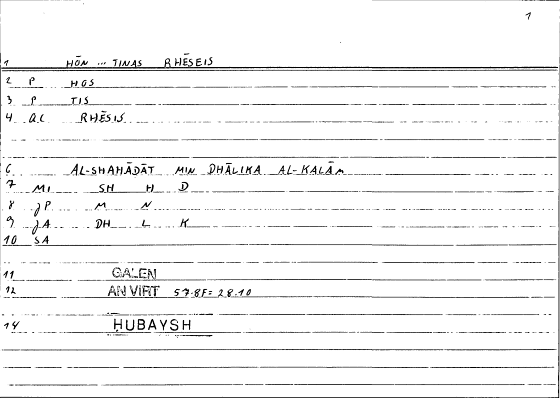 1
1 HŌN ... TINAS RHĒSEIS
2 P HOS
3 P TIS
4 QC RHĒSIS
6 AL-SHAHĀDĀT MIN DHĀLIKA AL-KALĀM
7 MI SH H D
8 JP M N
9 JA DH L K
10 SA
11 GALEN
12 AN VIRT 57.8F= 28.10
14 ḤUBAYSH